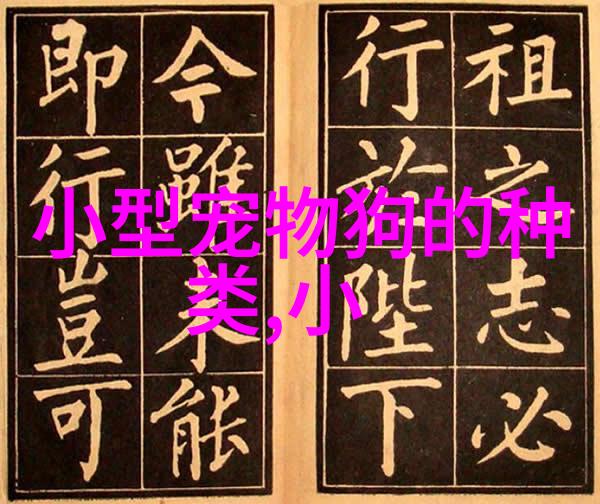 小型宠物狗的种
类,小
祖之志必
行於陛下
今雖未能
即行豈可